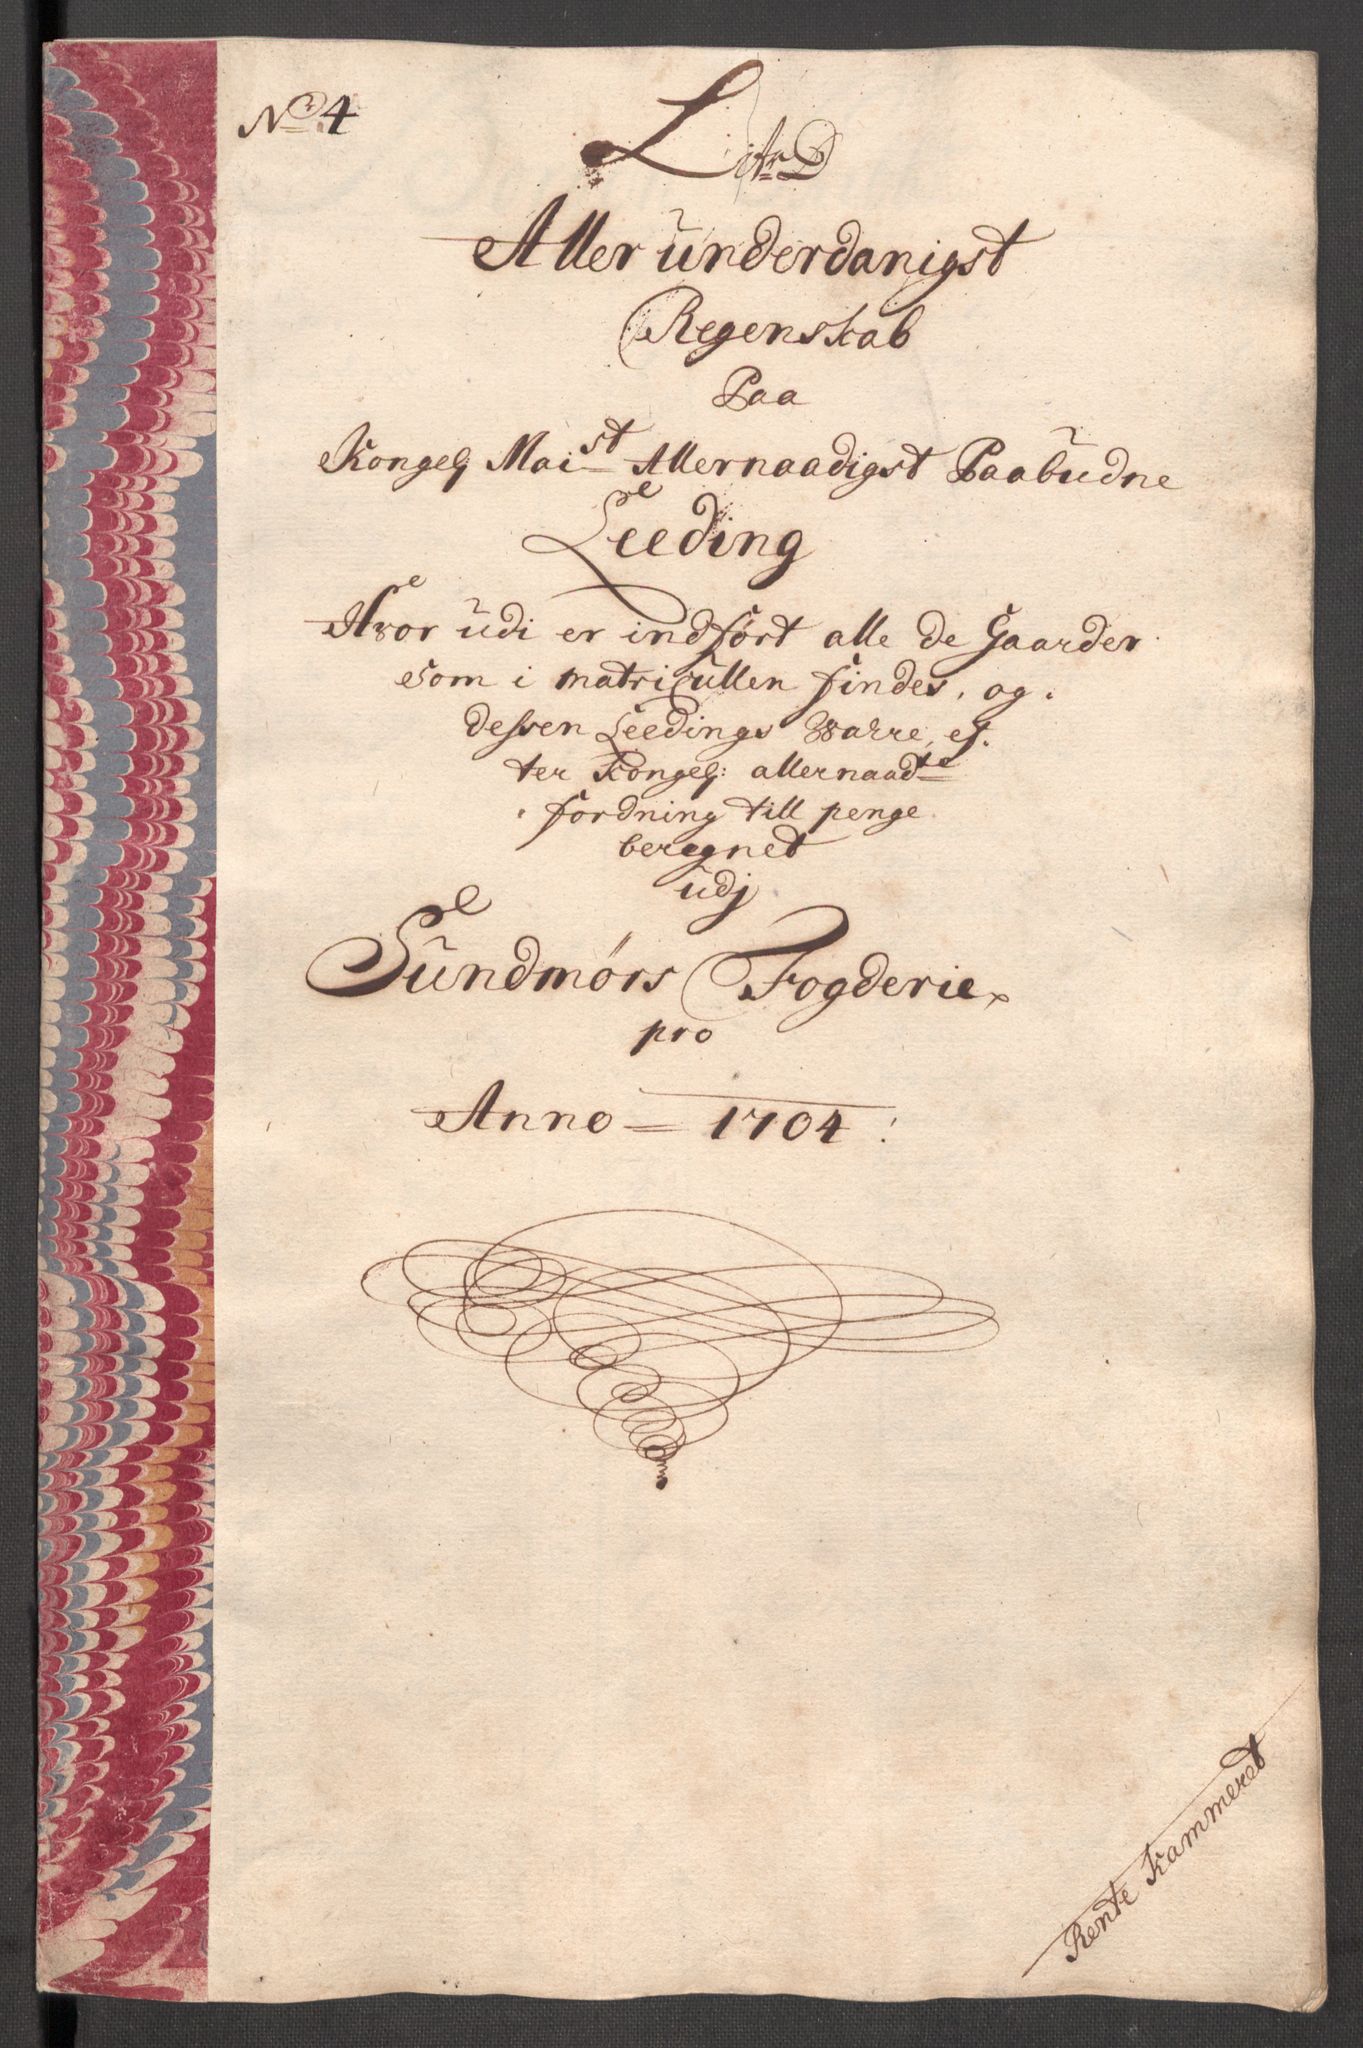 No 4
Litr D
Aller underdanigst
Regenskab
Paa
Kongel Maist Allernaadigst Paabudne
Leeding
Hvor udi er indført alle de Gaarder
som i matricullen findes, og
dessen Leedings Warre, ef-
ter Kongel: allernaadte
fordning till penge
beregnet
udj
Sundmørs Fogderie
pro
Anno = 1704:
Rente Kammeret